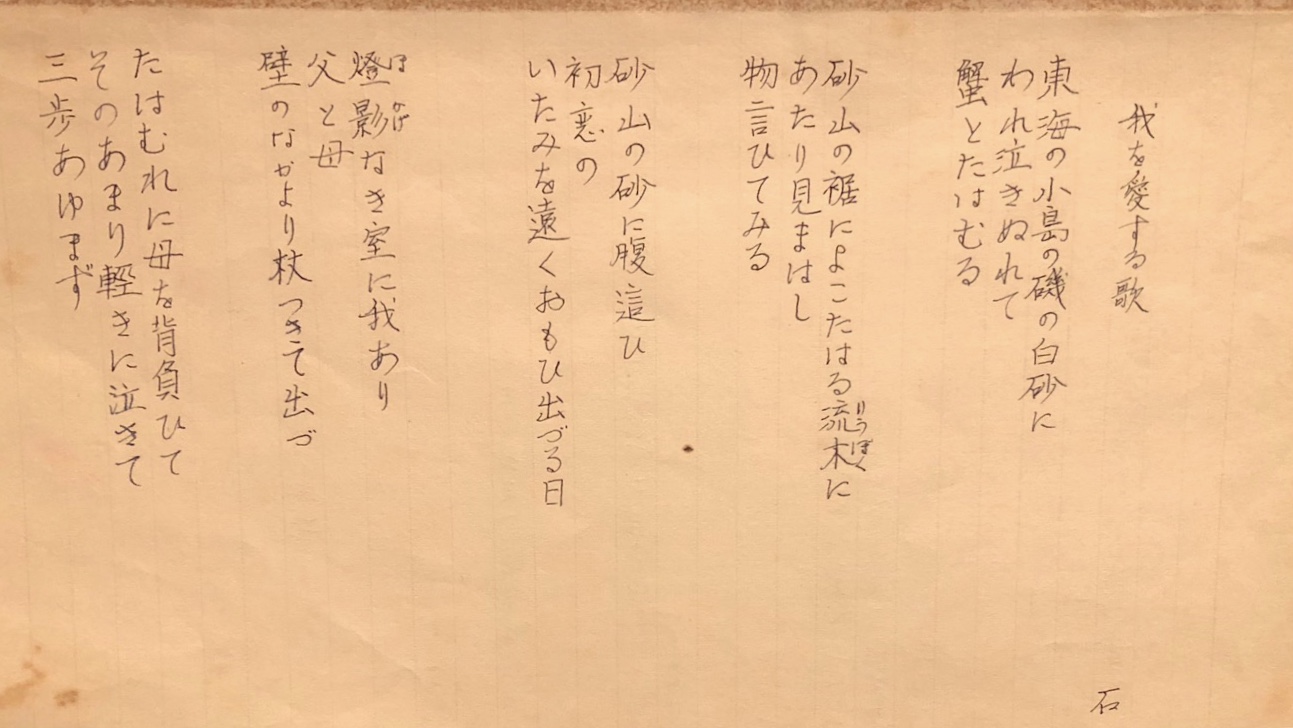 我を愛する歌
東海の小島の磯の白砂に
われ泣きぬれて
蟹とたはむる
砂山の裾によこたはる流木に
りうぼく
あたり見まはし
物言ひてみる
砂山の砂に腹這ひ
初恋の
いたみを遠くおもひ出づる日
燈影なき室に我あり
ほかげ
父と母
壁のなかより杖つきて出づ
たはむれに母を背負ひて
そのあまり軽きに泣きて
三歩あゆまず
石